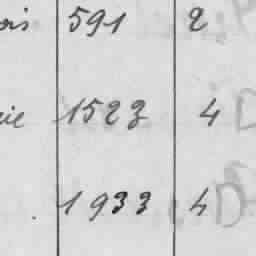 ois 591 2
ie 1523 4
1933 4